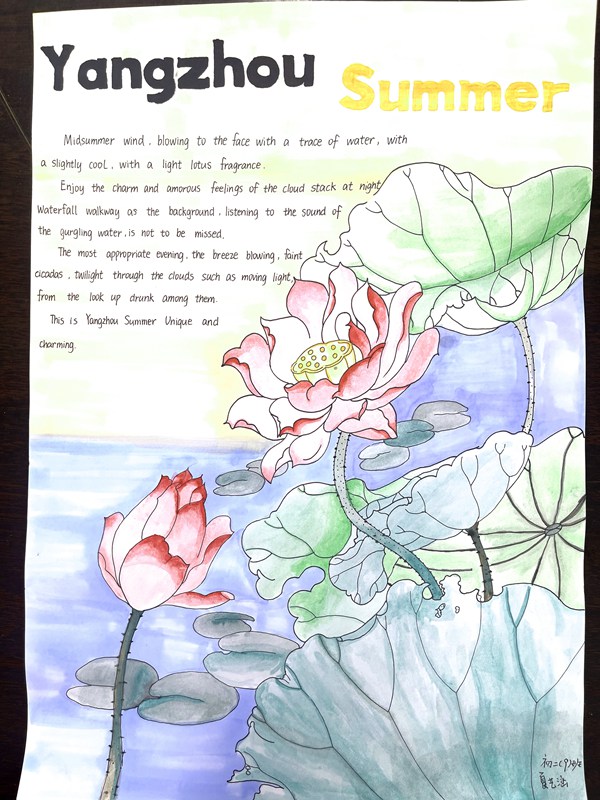 Yangzhou Summer
Midsummer wind, blowing to the face with a trace of water, with
a slightly cool, with a light lotus fragrance.
Enjoy the charm and amorous feelings of the cloud stack at night
Waterfall walkway as the background, listening to the sound of
the gurgling water, is not to be missed.
The most appropriate evening, the breeze blowing, faint
cicadas, twilight through the clouds such as moving light,
from the look up drunk among them.
This is Yangzhou Summer Unique and
charming.
初二(9)班
夏艺